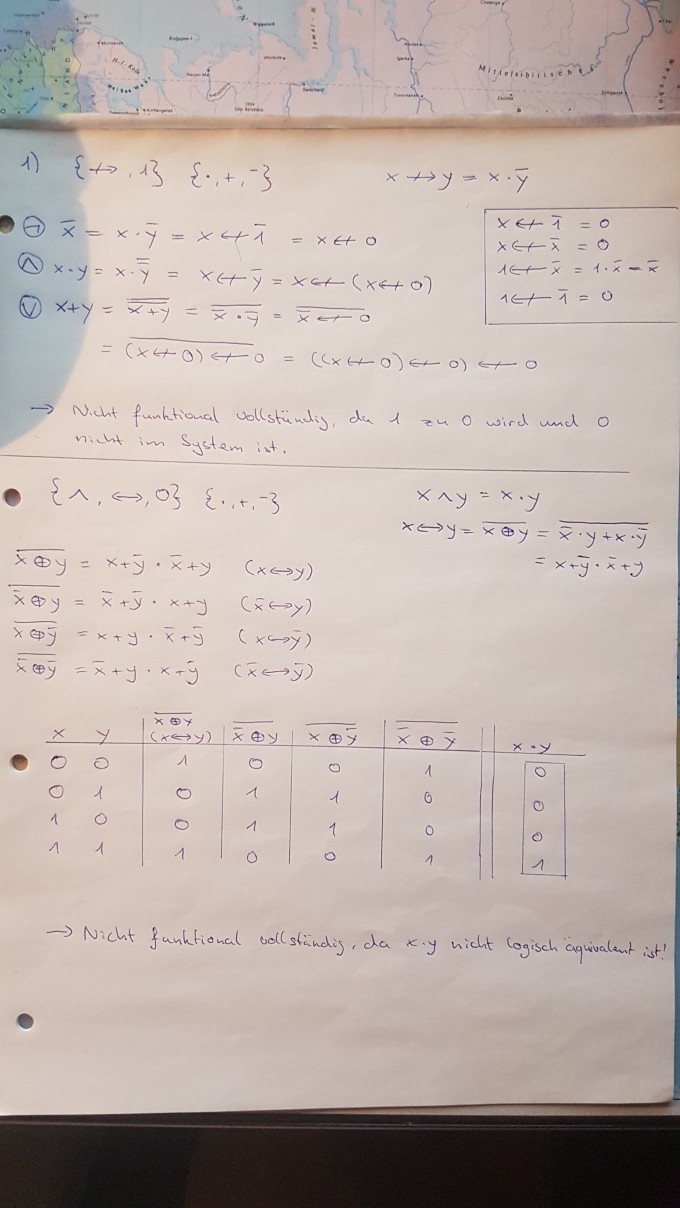 Mittelsibirisches
1) {↛, 1} {·, +, ¯} x ↛ y = x · y̅
x ↚ 1̅ = 0
x ↚ x̅ = 0
1 ↚ x̅ = 1 · x̅ = x̅
1 ↚ 1̅ = 0
¬ x̅ = x · y̅ = x ↚ 1̅ = x ↚ 0
∧ x · y = x · y̿ = x ↚ y̅ = x ↚ (x ↚ 0)
∨ x+y = \overline{\overline{x+y}} = \overline{x̅ · y̅} = \overline{x̅ ↚ 0}
= \overline{(x ↚ 0) ↚ 0} = ((x ↚ 0) ↚ 0) ↚ 0
→ Nicht funktional vollständig, da 1 zu 0 wird und 0
nicht im System ist.
{∧, ↔, 0} {·, +, ¯} x ∧ y = x · y
x ↔ y = \overline{x ⊕ y} = \overline{x̅ · y + x · y̅}
= x + y̅ · x̅ + y
\overline{x ⊕ y} = x + y̅ · x̅ + y (x ↔ y)
\overline{x̅ ⊕ y} = x̅ + y̅ · x + y (x̅ ↔ y)
\overline{x ⊕ y̅} = x + y · x̅ + y̅ (x ↔ y̅)
\overline{x̅ ⊕ y̅} = x̅ + y · x + y̅ (x̅ ↔ y̅)
x y \overline{x ⊕ y} (x ↔ y) \overline{x̅ ⊕ y} \overline{x ⊕ y̅} \overline{x̅ ⊕ y̅} x · y
0 0 1 0 0 1 0
0 1 0 1 1 0 0
1 0 0 1 1 0 0
1 1 1 0 0 1 1
→ Nicht funktional vollständig, da x·y nicht logisch äquivalent ist!